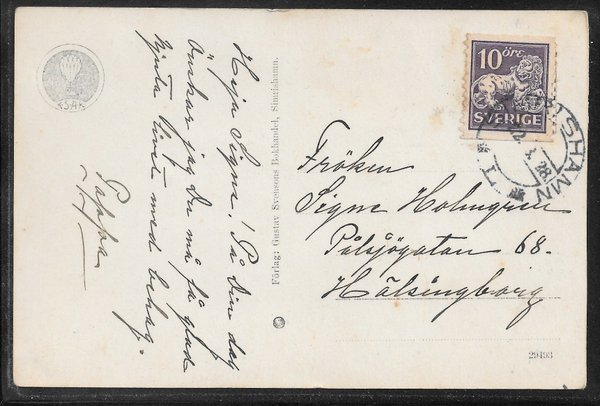 KSAK
Heja Signe! På Din dag
önskar jag Du må få glad
njuta livet med behag.
Pappa
Förlag: Gustav Svensons Bokhandel, Simrishamn.
10 ÖRE
SVERIGE
SHAMN
28
Fröken
Signe Holmgren
Pålsjögatan 68.
Hälsingborg
29493